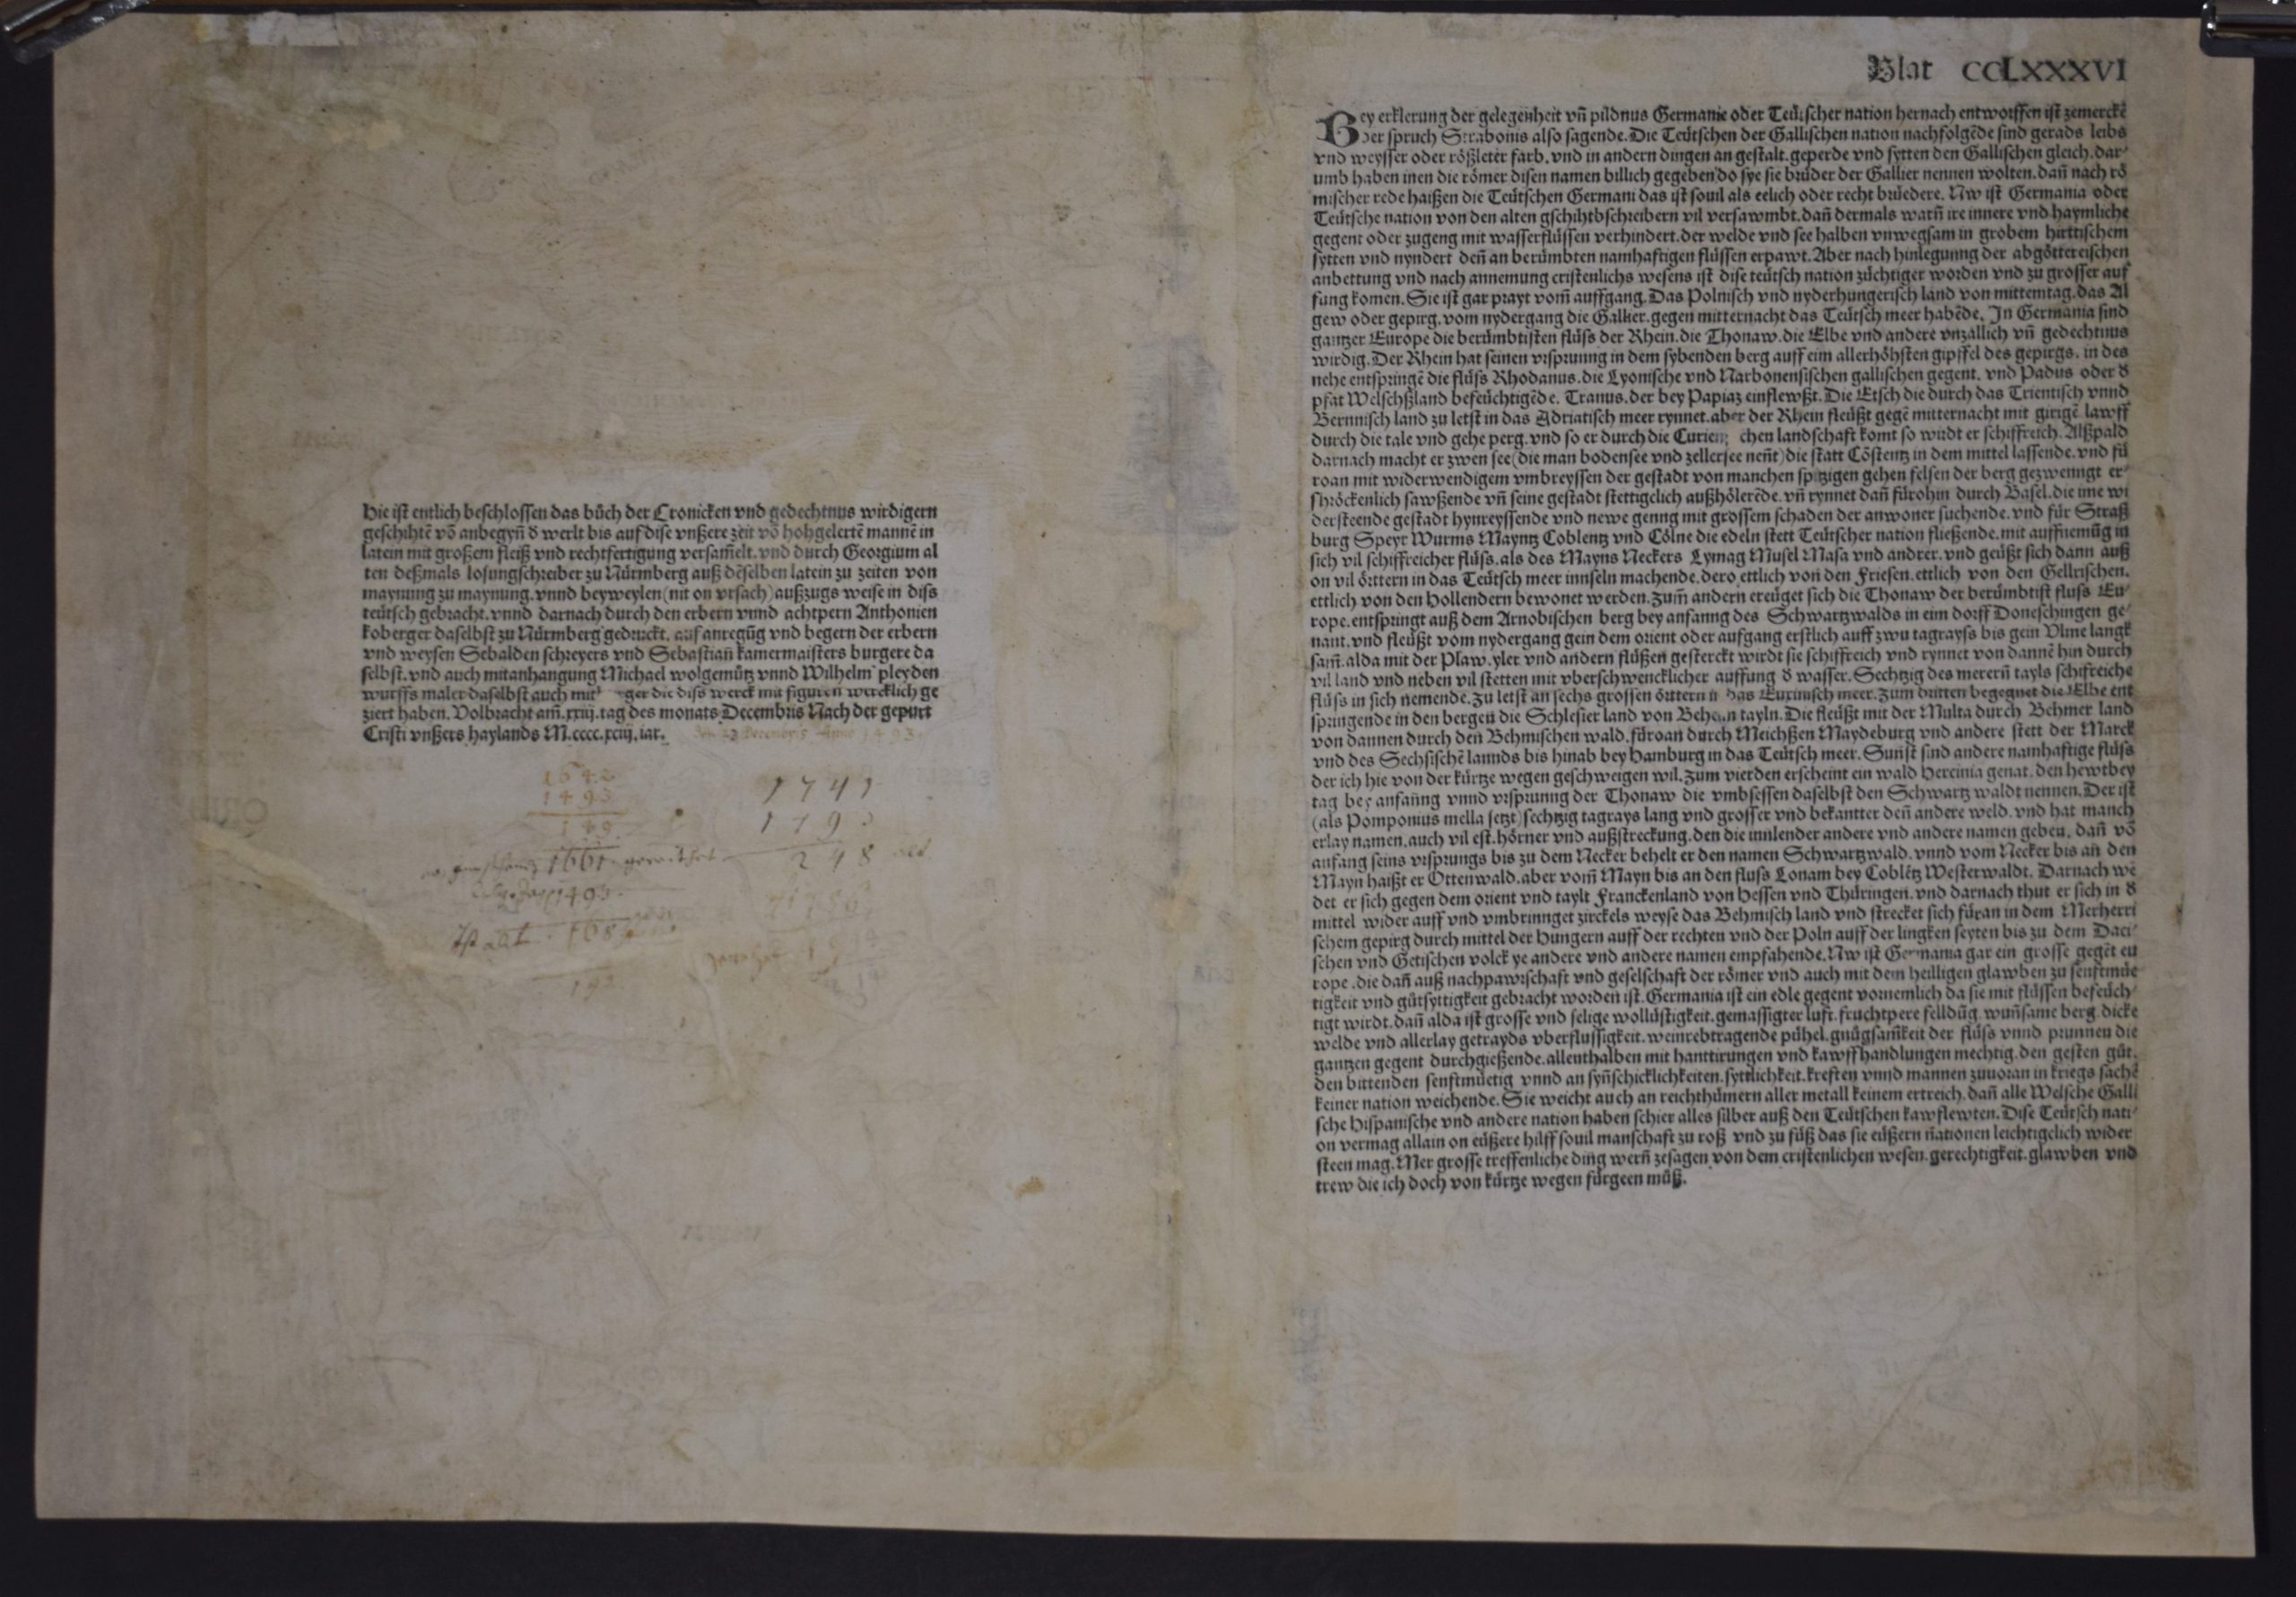 Hie ist entlich beschlossen das bůch der Cronicken vnd gedechtnus wirdigern
geschihtē vō anbegyñ d̕ werlt bis auf dise vnßere zeit vō hohgelertē mannē in
latein mit großem fleiß vnd rechtfertigung versam̃elt. vnd durch Georgium al
ten deßmals losungschreiber zu Nürmberg auß dēselben latein zu zeiten von
maynung zu maynung. vnnd beyweylen (nit on vrsach) außzugs weise in diss
teütsch gebracht. vnnd darnach durch den erbern vnnd achtpern Anthonien
koberger daselbst zu Nürmberg gedruckt. auf anregūg vnd begern der erbern
vnd weysen Sebalden schreyers vnd Sebastiañ kamermaisters burgere da
selbst. vnd auch mitanhangung Michael wolgemůtz vnnd Wilhelm pleyden
wurffs maler daselbst auch die diss werck mit figuren wercklich ge
ziert haben. Volbracht am̃. xxiij. tag des monats Decembris Nach der gepurt
Cristi vnßers haylands M. cccc. xciij. iar.
23 Decembris Anno 1493.
1642
1493
149
1741
1493
248
1661
1493
168
1786
Blat CCLXXXVI
Bey erklerung der gelegenheit vñ pildnus Germanie oder Teütscher nation hernach entworffen ist zemerckē
der spruch Strabonis also sagende. Die Teütschen der Gallischen nation nachfolgēde sind gerads leibs
vnd weysser oder rößleter farb. vnd in andern dingen an gestalt. geperde vnd sytten den Gallischen gleich. dar-
umb haben inen die römer disen namen billich gegeben do sye sie brüder der Gallier nennen wolten. dañ nach rö
mischer rede haißen die Teütschen Germani das ist souil als eelich oder recht brüedere. Nw ist Germania oder
Teütsche nation von den alten gschihtbschreibern vil versawmbt. dañ dermals warñ ire innere vnd haymliche
gegent oder zugeng mit wasserflüssen verhindert. der welde vnd see halben vnwegsam in grobem hirttischem
sytten vnd nyndert deñ an berümbten namhaftigen flüssen erpawt. Aber nach hinlegunng der abgöttereischen
anbettung vnd nach annemung cristenlichs wesens ist dise teütsch nation züchtiger worden vnd zu grosser auf
fung komen. Sie ist gar prayt vom̃ auffgang. Das Polnisch vnd nyderhungerisch land von mittemtag. das Al
gew oder gepirg. vom nydergang die Gallier. gegen mitternacht das Teütsch meer habēde. In Germania sind
gantzer Europe die berümbtisten flüss der Rhein. die Thonaw. die Elbe vnd andere vnzallich vñ gedechtnus
wirdig. Der Rhein hat seinen vrsprunng in dem sybenden berg auff eim allerhöhsten gipffel des gepirgs. in des
nehe entspringē die flüss Rhodanus. die Lyonische vnd Narbonensischen gallischen gegent. vnd Padus oder d̕
pfat Welschßland befeüchtigēde. Tranus. der bey Papiaz einflewßt. Die Etsch die durch das Trientisch vnnd
Bernnisch land zu letst in das Adriatisch meer rynnet. aber der Rhein fleüßt gegē mitternacht mit girigē lawff
durch die tale vnd gehe perg. vnd so er durch die chen landschaft komt so wirdt er schiffreich. Alßpald
darnach macht er zwen see (die man bodensee vnd zellersee neñt) die statt Cöstentz in dem mittel lassende. vnd fü
roan mit widerwendigem vmbreyssen der gestadt von manchen spitzigen gehen felsen der berg gezwenngt er-
shröckenlich sawßende vñ seine gestadt stettigclich außhölerēde. vñ rynnet dañ fürohin durch Basel. die ime wi
dersteende gestadt hynreyssende vnd newe genng mit grossem schaden der anwoner suchende. vnd für Straß
burg Speyr Wurms Mayntz Coblentz vnd Cölne die edeln stett Teütscher nation fließende. mit auffnemūg in
sich vil schiffreicher flüss. als des Mayns Neckers Lymag Musel Masa vnd andrer. vnd geüßt sich dann auß
on vil örttern in das Teütsch meer innseln machende. dero ettlich von den Friesen. ettlich von den Gellrischen.
ettlich von den Hollendern bewonet werden. Zum̃ andern ereüget sich die Thonaw der berümbtist fluss Eu-
rope. entspringt auß dem Arnobischen berg bey anfanng des Schwartzwalds in eim dorff Doneschingen ge-
nant. vnd fleüßt vom nydergang gein dem orient oder aufgang erstlich auff zwu tagrayss bis gein Vlme langk
sam̃. alda mit der Plaw. yler vnd andern flüßen gesterckt wirdt sie schiffreich vnd rynnet von dannē hin durch
vil land vnd neben vil stetten mit vberschwencklicher auffung d̕ wasser. Sechtzig des merern tayls schifreiche
flüss in sich nemende. zu letst an sechs grossen örttern das Euxinisch meer. Zum dritten begegnet die Elbe ent
springende in den bergen die Schlesier land von Behem tayln. Die fleüßt mit der Multa durch Behmer land
von dannen durch den Behmischen wald. füroan durch Meichßen Maydeburg vnd andere stett der Marck
vnd des Sechsischē lannds bis hinab bey Hamburg in das Teütsch meer. Sunst sind andere namhaftige flüss
der ich hie von der kürtze wegen geschweigen wil. Zum vierden erscheint ein wald Hercinia genāt. den hewtbey
tag bey anfanng vnnd vrsprunng der Thonaw die vmbsessen daselbst den Schwartz waldt nennen. Der ist
(als Pomponius mella setzt) sechtzig tagrays lang vnd grosser vnd bekantter deñ andere weld. vnd hat manch
erlay namen. auch vil est. hörner vnd außstreckung. den die innlender andere vnd andere namen geben. dañ vō
anfang seins vrsprungs bis zu dem Necker behelt er den namen Schwartzwald. vnnd vom Necker bis an den
Mayn haißt er Ottenwald. aber vom̃ Mayn bis an den fluss Lonam bey Coblētz Westerwaldt. Darnach wē
det er sich gegen dem orient vnd taylt Franckenland von Hessen vnd Thüringen. vnd darnach thut er sich in d̕
mittel wider auff vnd vmbrinnget zirckels weyse das Behmisch land vnd strecket sich füran in dem Merherri
schem gepirg durch mittel der Hungern auff der rechten vnd der Poln auff der lingken seyten bis zu dem Daci-
schen vnd Getischen volck ye andere vnd andere namen empfahende. Nw ist Germania gar ein grosse gegēt eu
rope. die dañ auß nachpawrschaft vnd geselschaft der römer vnd auch mit dem heilligen glawben zu senftmüe
tigkeit vnd gütsyttigkeit gebracht worden ist. Germania ist ein edle gegent vornemlich da sie mit flüssen befeüch-
tigt wirdt. dañ alda ist grosse vnd selige wollüstigkeit. gemassigter luft. fruchtpere felldūg. wuñsame berg. dicke
welde vnd allerlay getrayds vberflussigkeit. weinrebtragende pühel. gnügsam̃keit der flüss vnnd prunnen die
gantzen gegent durchgießende. allenthalben mit hanttirungen vnd kawffhandlungen mechtig. den gesten gůt.
den bittenden senftmüetig vnnd an syñschicklichkeiten. syttlichkeit. kreften vnnd mannen zuuoran in kriegs sachē
keiner nation weichende. Sie weicht auch an reichthümern aller metall keinem ertreich. dañ alle Welsche Galli
sche Hispanische vnd andere nation haben schier alles silber auß den Teütschen kawflewten. Dise Teütsch nati-
on vermag allain on eüßere hilff souil manschaft zu roß vnd zu fůß das sie eüßern nationen leichtigclich wider
steen mag. Mer grosse treffenliche ding werñ zesagen von dem cristenlichen wesen. gerechtigkeit. glawben vnd
trew die ich doch von kürtze wegen fürgeen můß.